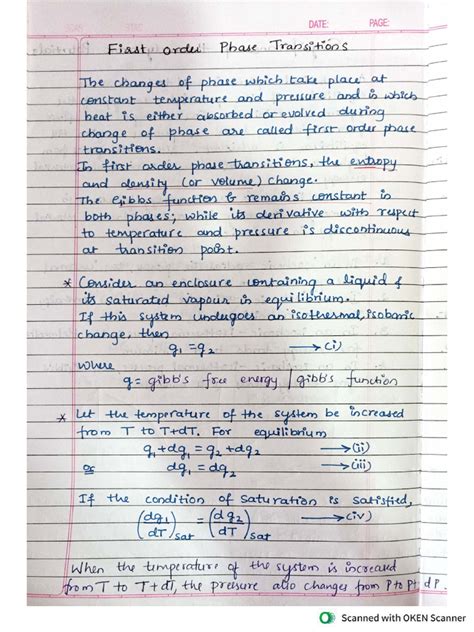 DATE: PAGE:
First order Phase Transitions
The changes of phase which take place at
constant temperature and pressure and in which
heat is either absorbed or evolved during
change of phase are called first order phase
transitions.
In first order phase transitions, the entropy
and density (or volume) change.
The Gibbs function G remains constant in
both phases, while its derivative with respect
to temperature and pressure is discontinuous
at transition point.
* Consider an enclosure containing a liquid &
its saturated vapour in equilibrium.
If this system undergoes an isothermal, isobaric
change, then
g₁ = g₂ → (i)
where
g = gibb's free energy | gibb's function
* Let the temperature of the system be increased
from T to T+dT. For equilibrium
g₁+dg₁ = g₂+dg₂ → (ii)
or dg₁ = dg₂ → (iii)
If the condition of saturation is satisfied,
(dg₁/dT)sat = (dg₂/dT)sat → (iv)
When the temperature of the system is increased
from T to T+dT, the pressure also changes from P to P+dP.
Scanned with OKEN Scanner